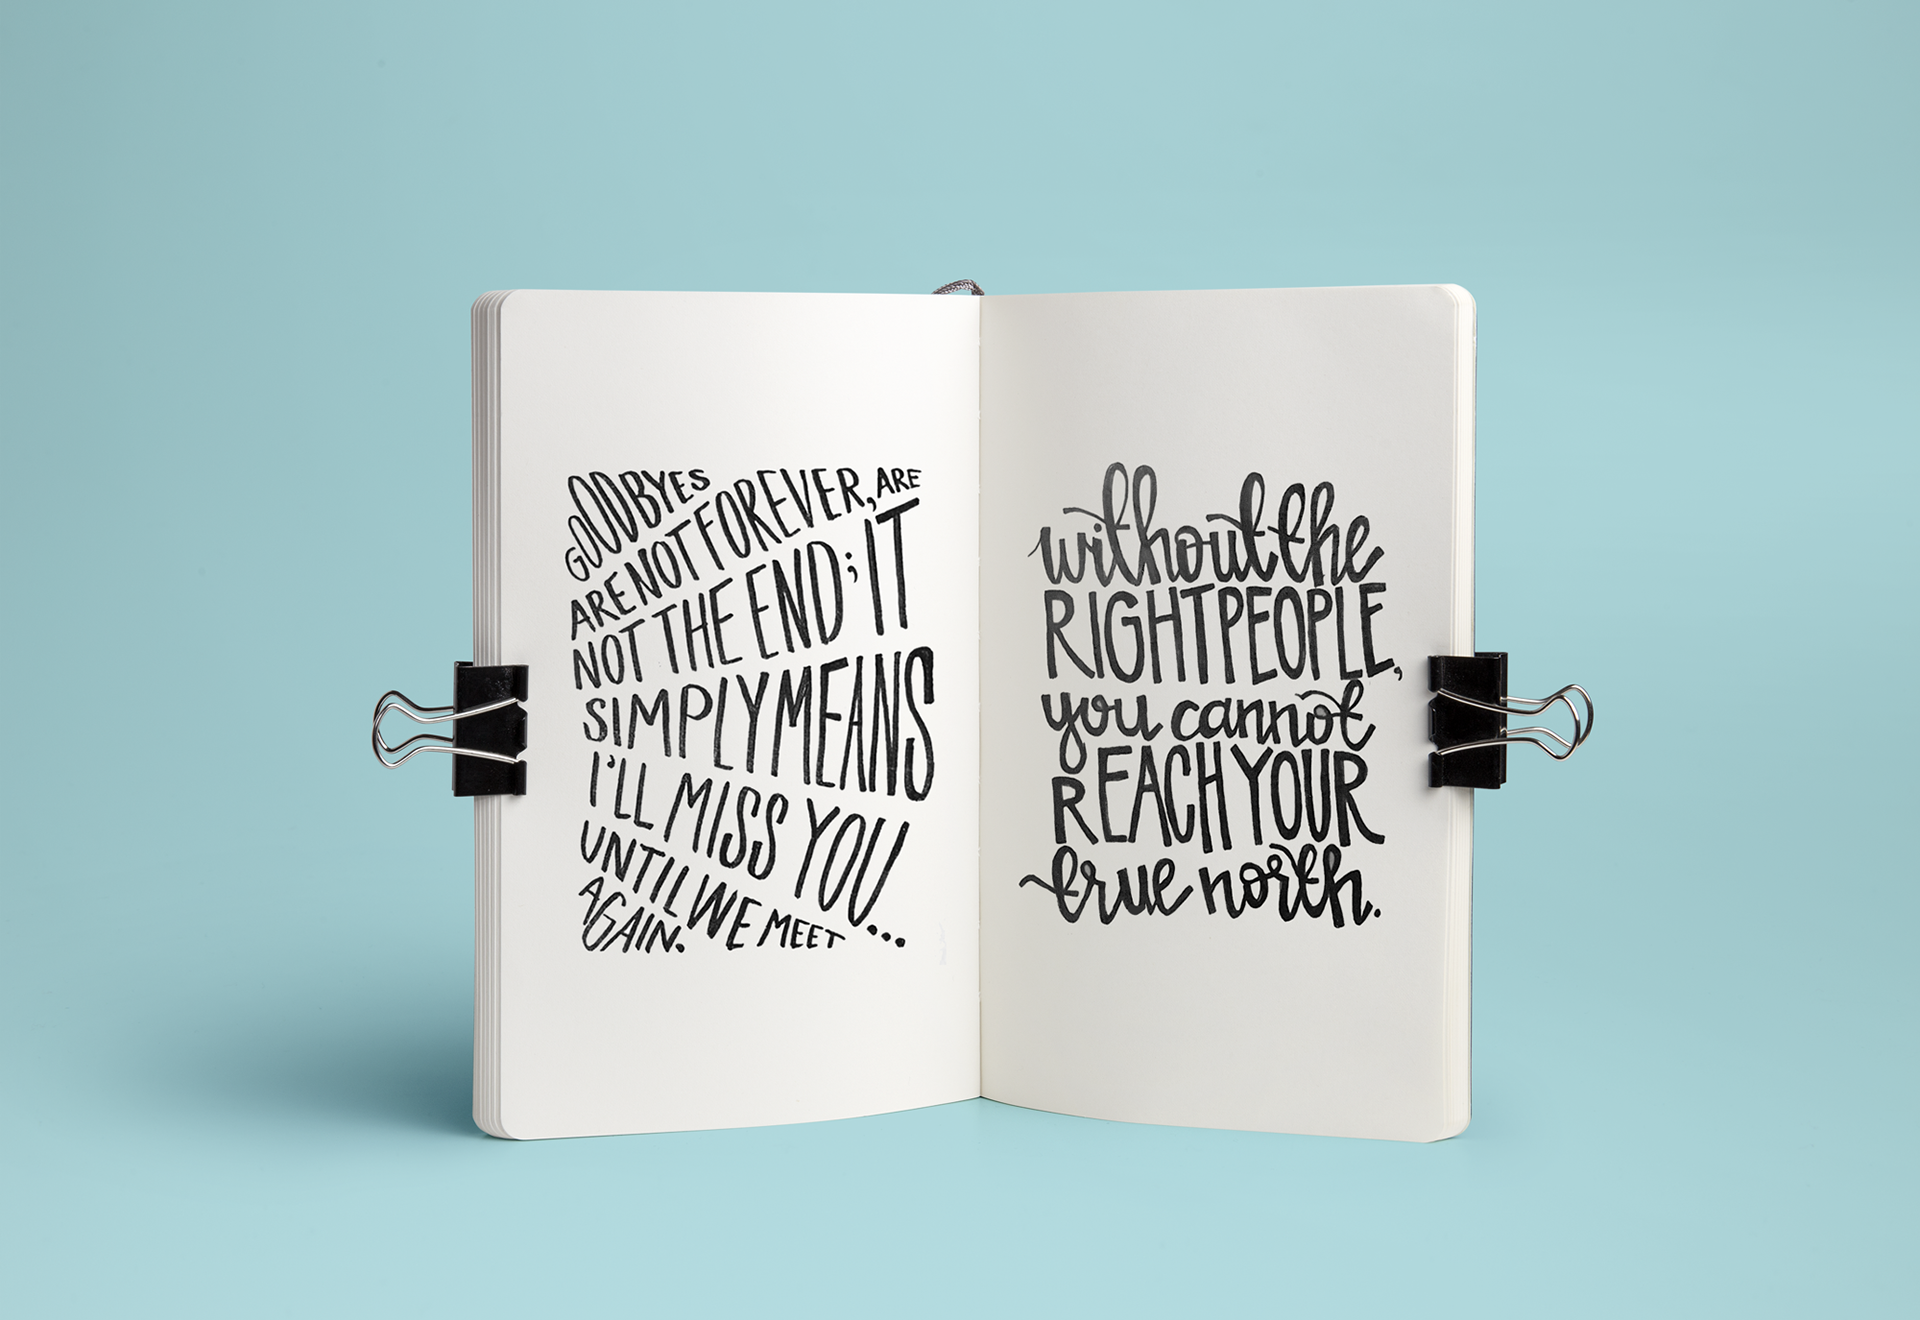 GOODBYES
ARE NOT FOREVER, ARE
NOT THE END; IT
SIMPLY MEANS
I'LL MISS YOU...
UNTIL WE MEET
AGAIN.
without the
RIGHT PEOPLE,
you cannot
REACH YOUR
true north.